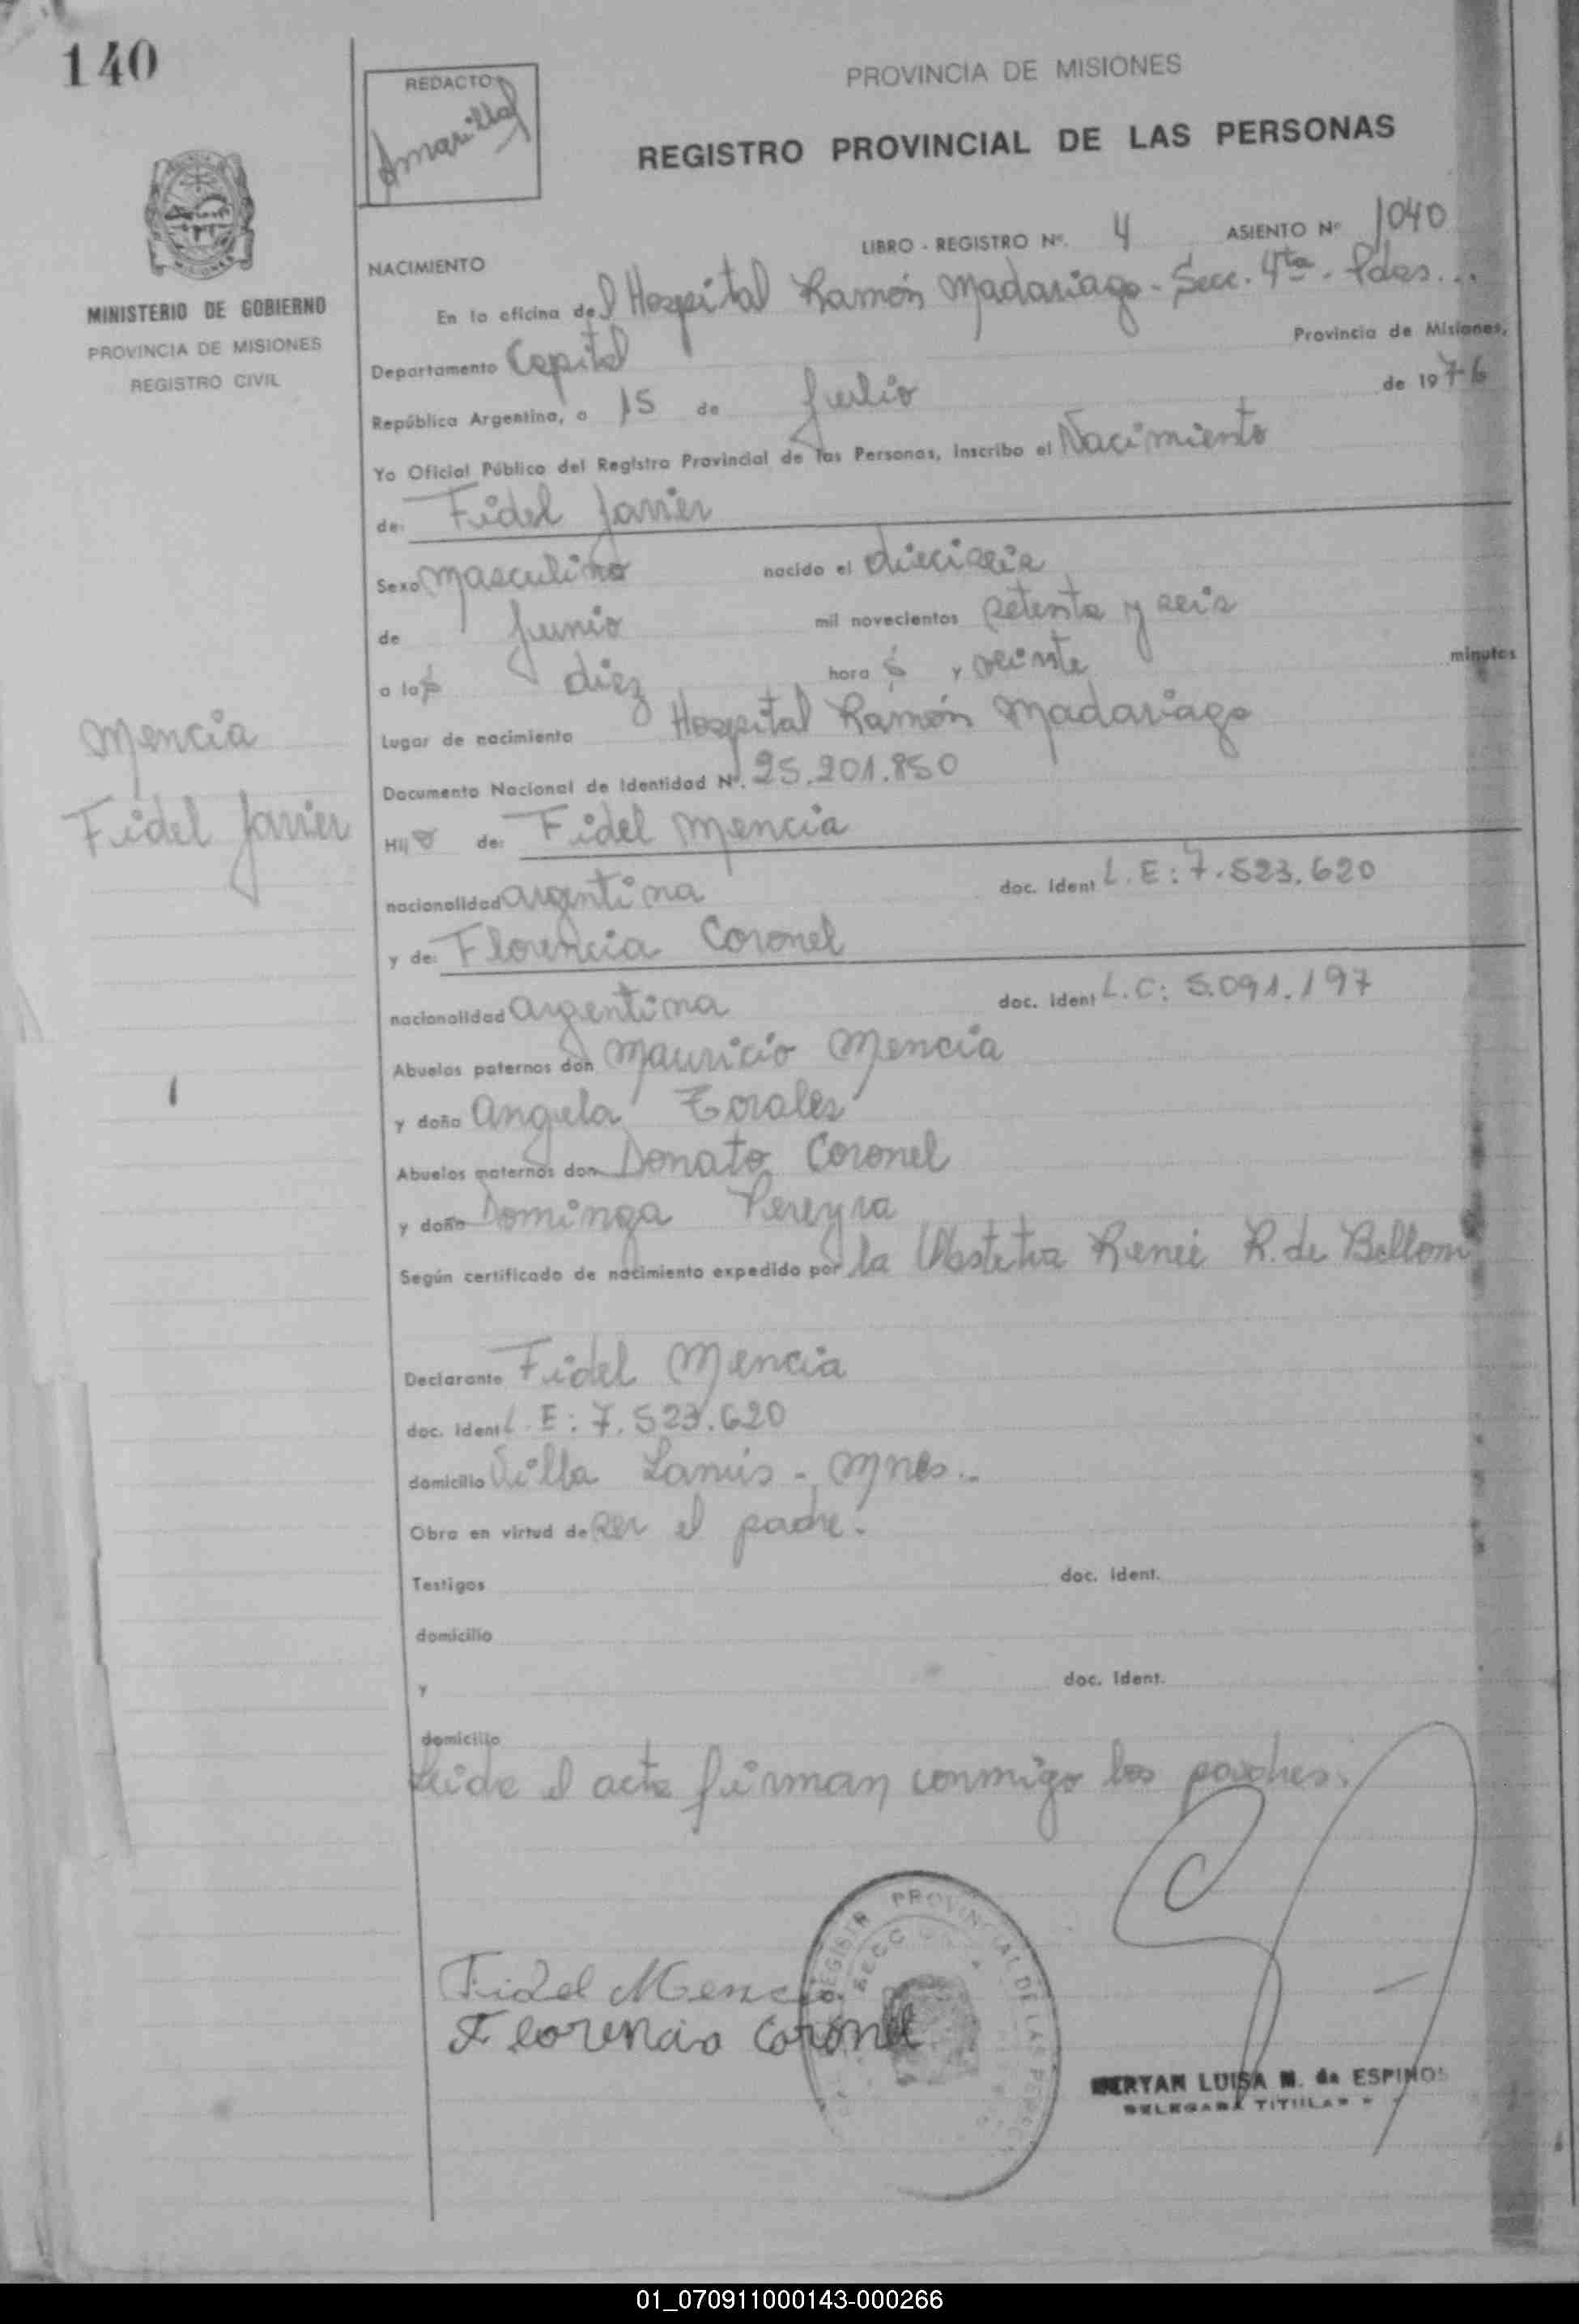 140
REDACTO
Amarilla
PROVINCIA DE MISIONES
REGISTRO PROVINCIAL DE LAS PERSONAS
MINISTERIO DE GOBIERNO
PROVINCIA DE MISIONES
REGISTRO CIVIL
LIBRO - REGISTRO Nº. 4 ASIENTO Nº 1040
NACIMIENTO
En la oficina del Hospital Ramón Madariaga - Secc. 4ta - Pdas...
Departamento Capital Provincia de Misiones,
República Argentina, a 15 de Julio de 1976
Yo Oficial Público del Registro Provincial de las Personas, Inscribo el Nacimiento
de: Fidel Javier
Sexo masculino nacido el dieciseis
de Junio mil novecientos setenta y seis
a las diez horas y veinte minutos
Lugar de nacimiento Hospital Ramón Madariaga
Documento Nacional de Identidad Nº. 25.201.850
Mencia
Fidel Javier
Hijo de: Fidel Mencia
nacionalidad argentina doc. Ident L.E: 7.523.620
y de: Florencia Coronel
nacionalidad argentina doc. Ident L.C: 5.091.197
Abuelos paternos don Mauricio Mencia
y doña Angela Torales
Abuelos maternos don Donato Coronel
y doña Dominga Pereyra
Según certificado de nacimiento expedido por la Obstetra Renée R. de Belloni
Declarante Fidel Mencia
doc. Ident L.E: 7.523.620
domicilio Villa Lanús - Mnes..
Obra en virtud de ser el padre.
Testigos doc. Ident.
domicilio
y doc. Ident.
domicilio
Leida el acta firman conmigo los padres.
Fidel Mencia
Florencia Coronel
REGISTRO PROVINCIAL DE LAS PERSONAS
SECC
MERYAN LUISA M. de ESPINOS
DELEGADA TITULAR
01_070911000143-000266